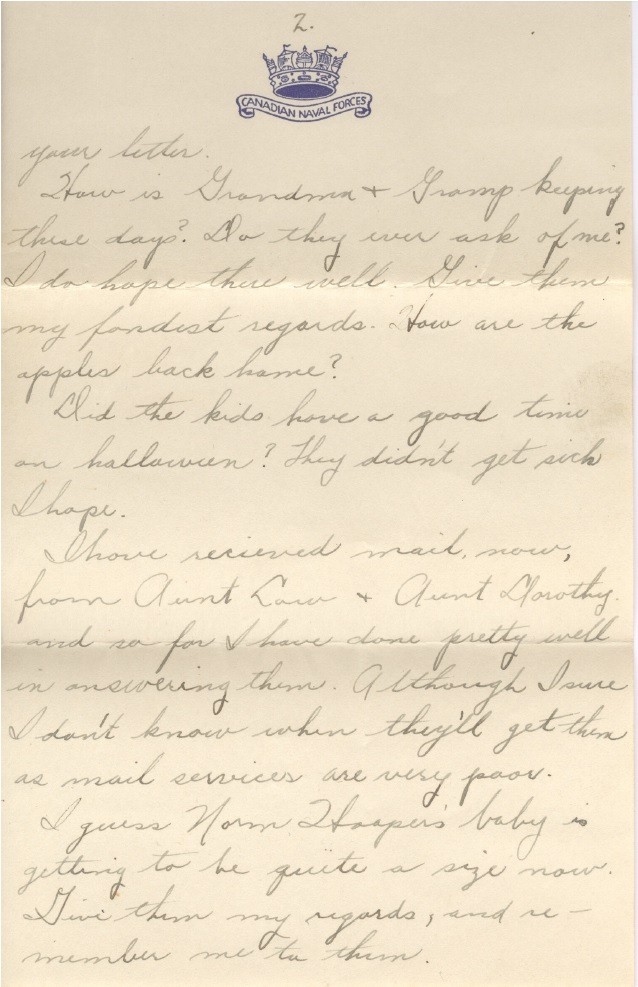 2.
CANADIAN NAVAL FORCES
your letter.
How is Grandma + Gramp keeping
these days? Do they ever ask of me?
I do hope there well. Give them
my fondest regards. How are the
apples back home?
Did the kids have a good time
on halloween? They didn't get sick
I hope.
I have recieved mail, now,
from Aunt Law + Aunt Dorothy.
and so far I have done pretty well
in answering them. Although I sure
I don't know when they'll get them
as mail services are very poor.
I guess Norm Hooper's baby is
getting to be quite a size now.
Give them my regards, and re-
member me to them.